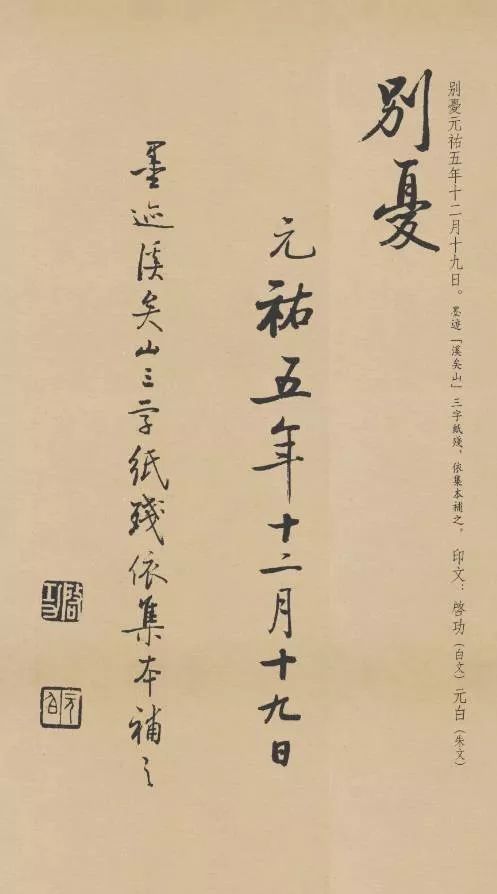 别憂元祐五年十二月十九日。墨迹「溪矣山」三字紙殘，依集本補之。 印文：啓功（白文）元白（朱文）
别憂
元祐五年十二月十九日
墨迹溪矣山三字紙殘依集本補之
啓功
元白